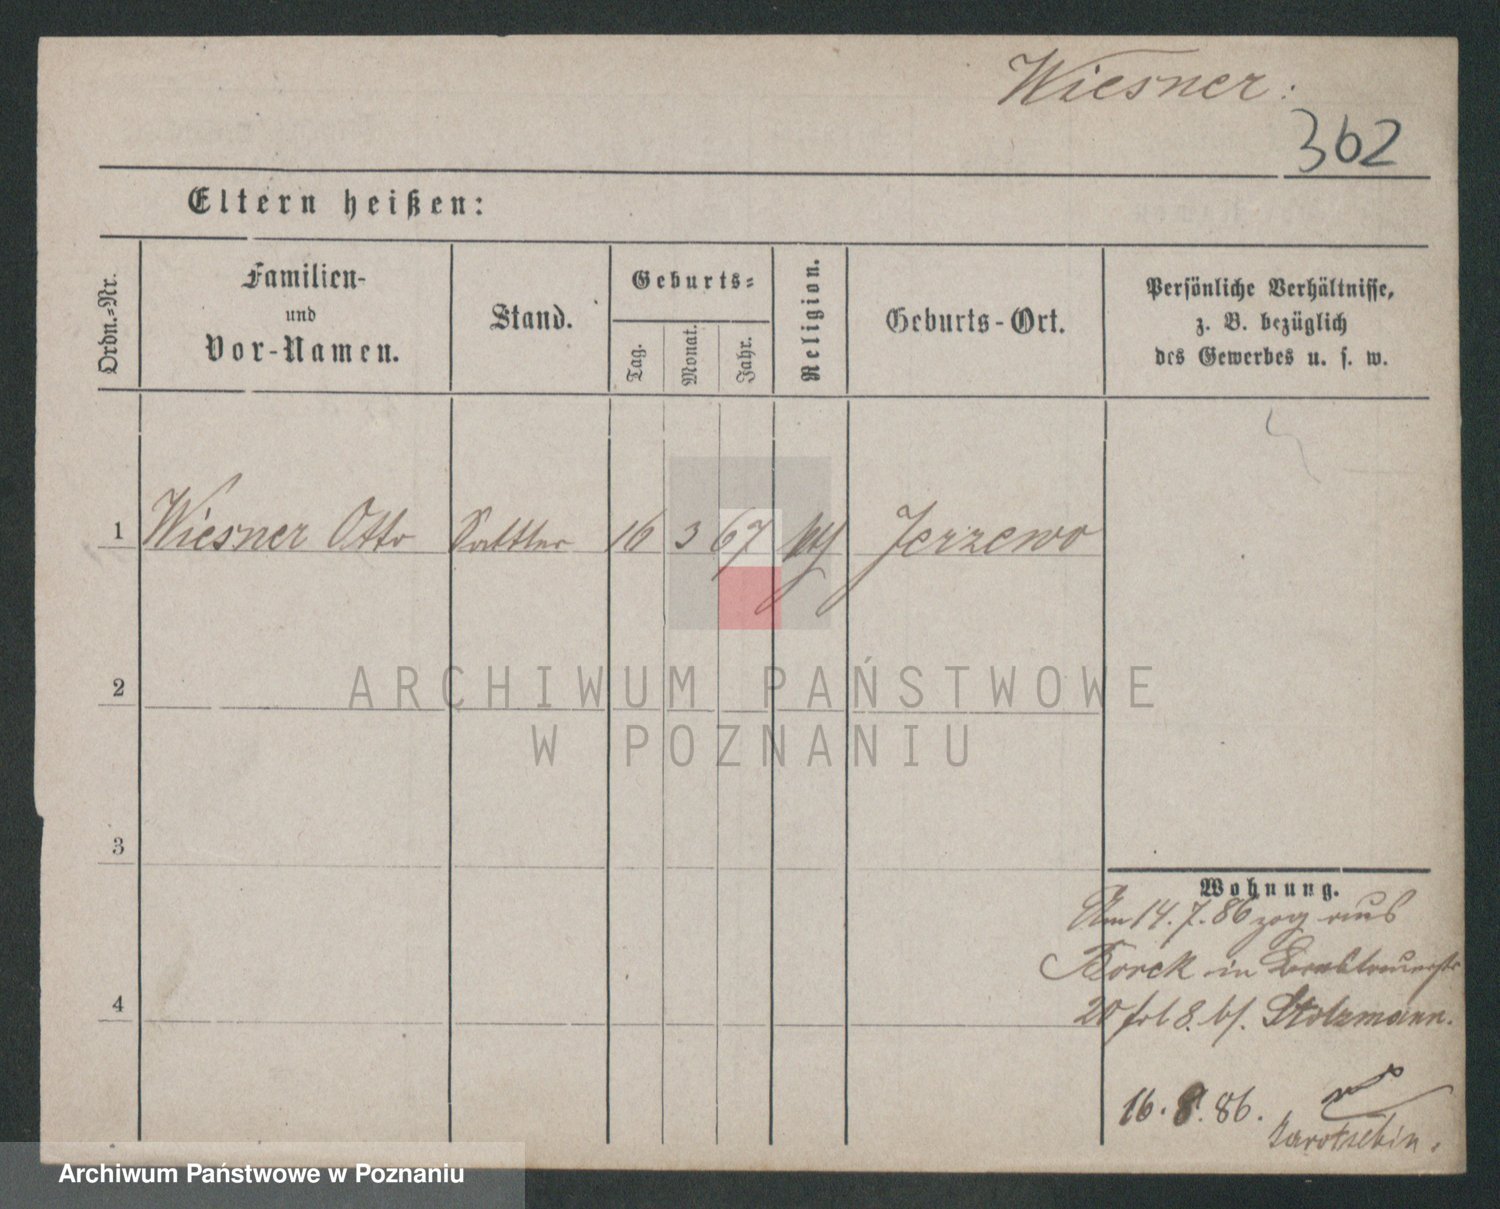 Wiesner:
362
Eltern heißen:
Ordn.-Nr.
Familien-
und
Vor-Namen.
Stand.
Geburts-
Tag.
Monat.
Jahr.
Religion.
Geburts-Ort.
Persönliche Verhältnisse,
z. B. bezüglich
des Gewerbes u. s. w.
1 Wiesner Otto Sattler 16 3 67 Jerzewo
2
3
4
ARCHIWUM PAŃSTWOWE
W POZNANIU
Wohnung.
Am 14.7.86 zog aus
Borck in
20 bei Stolzmann.
16.8.86.
Jarotschin.
Archiwum Państwowe w Poznaniu